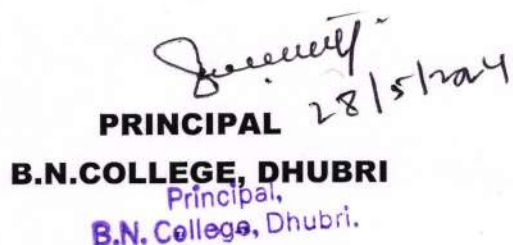 28/5/2024
PRINCIPAL
B.N.COLLEGE, DHUBRI
Principal,
B.N. College, Dhubri.